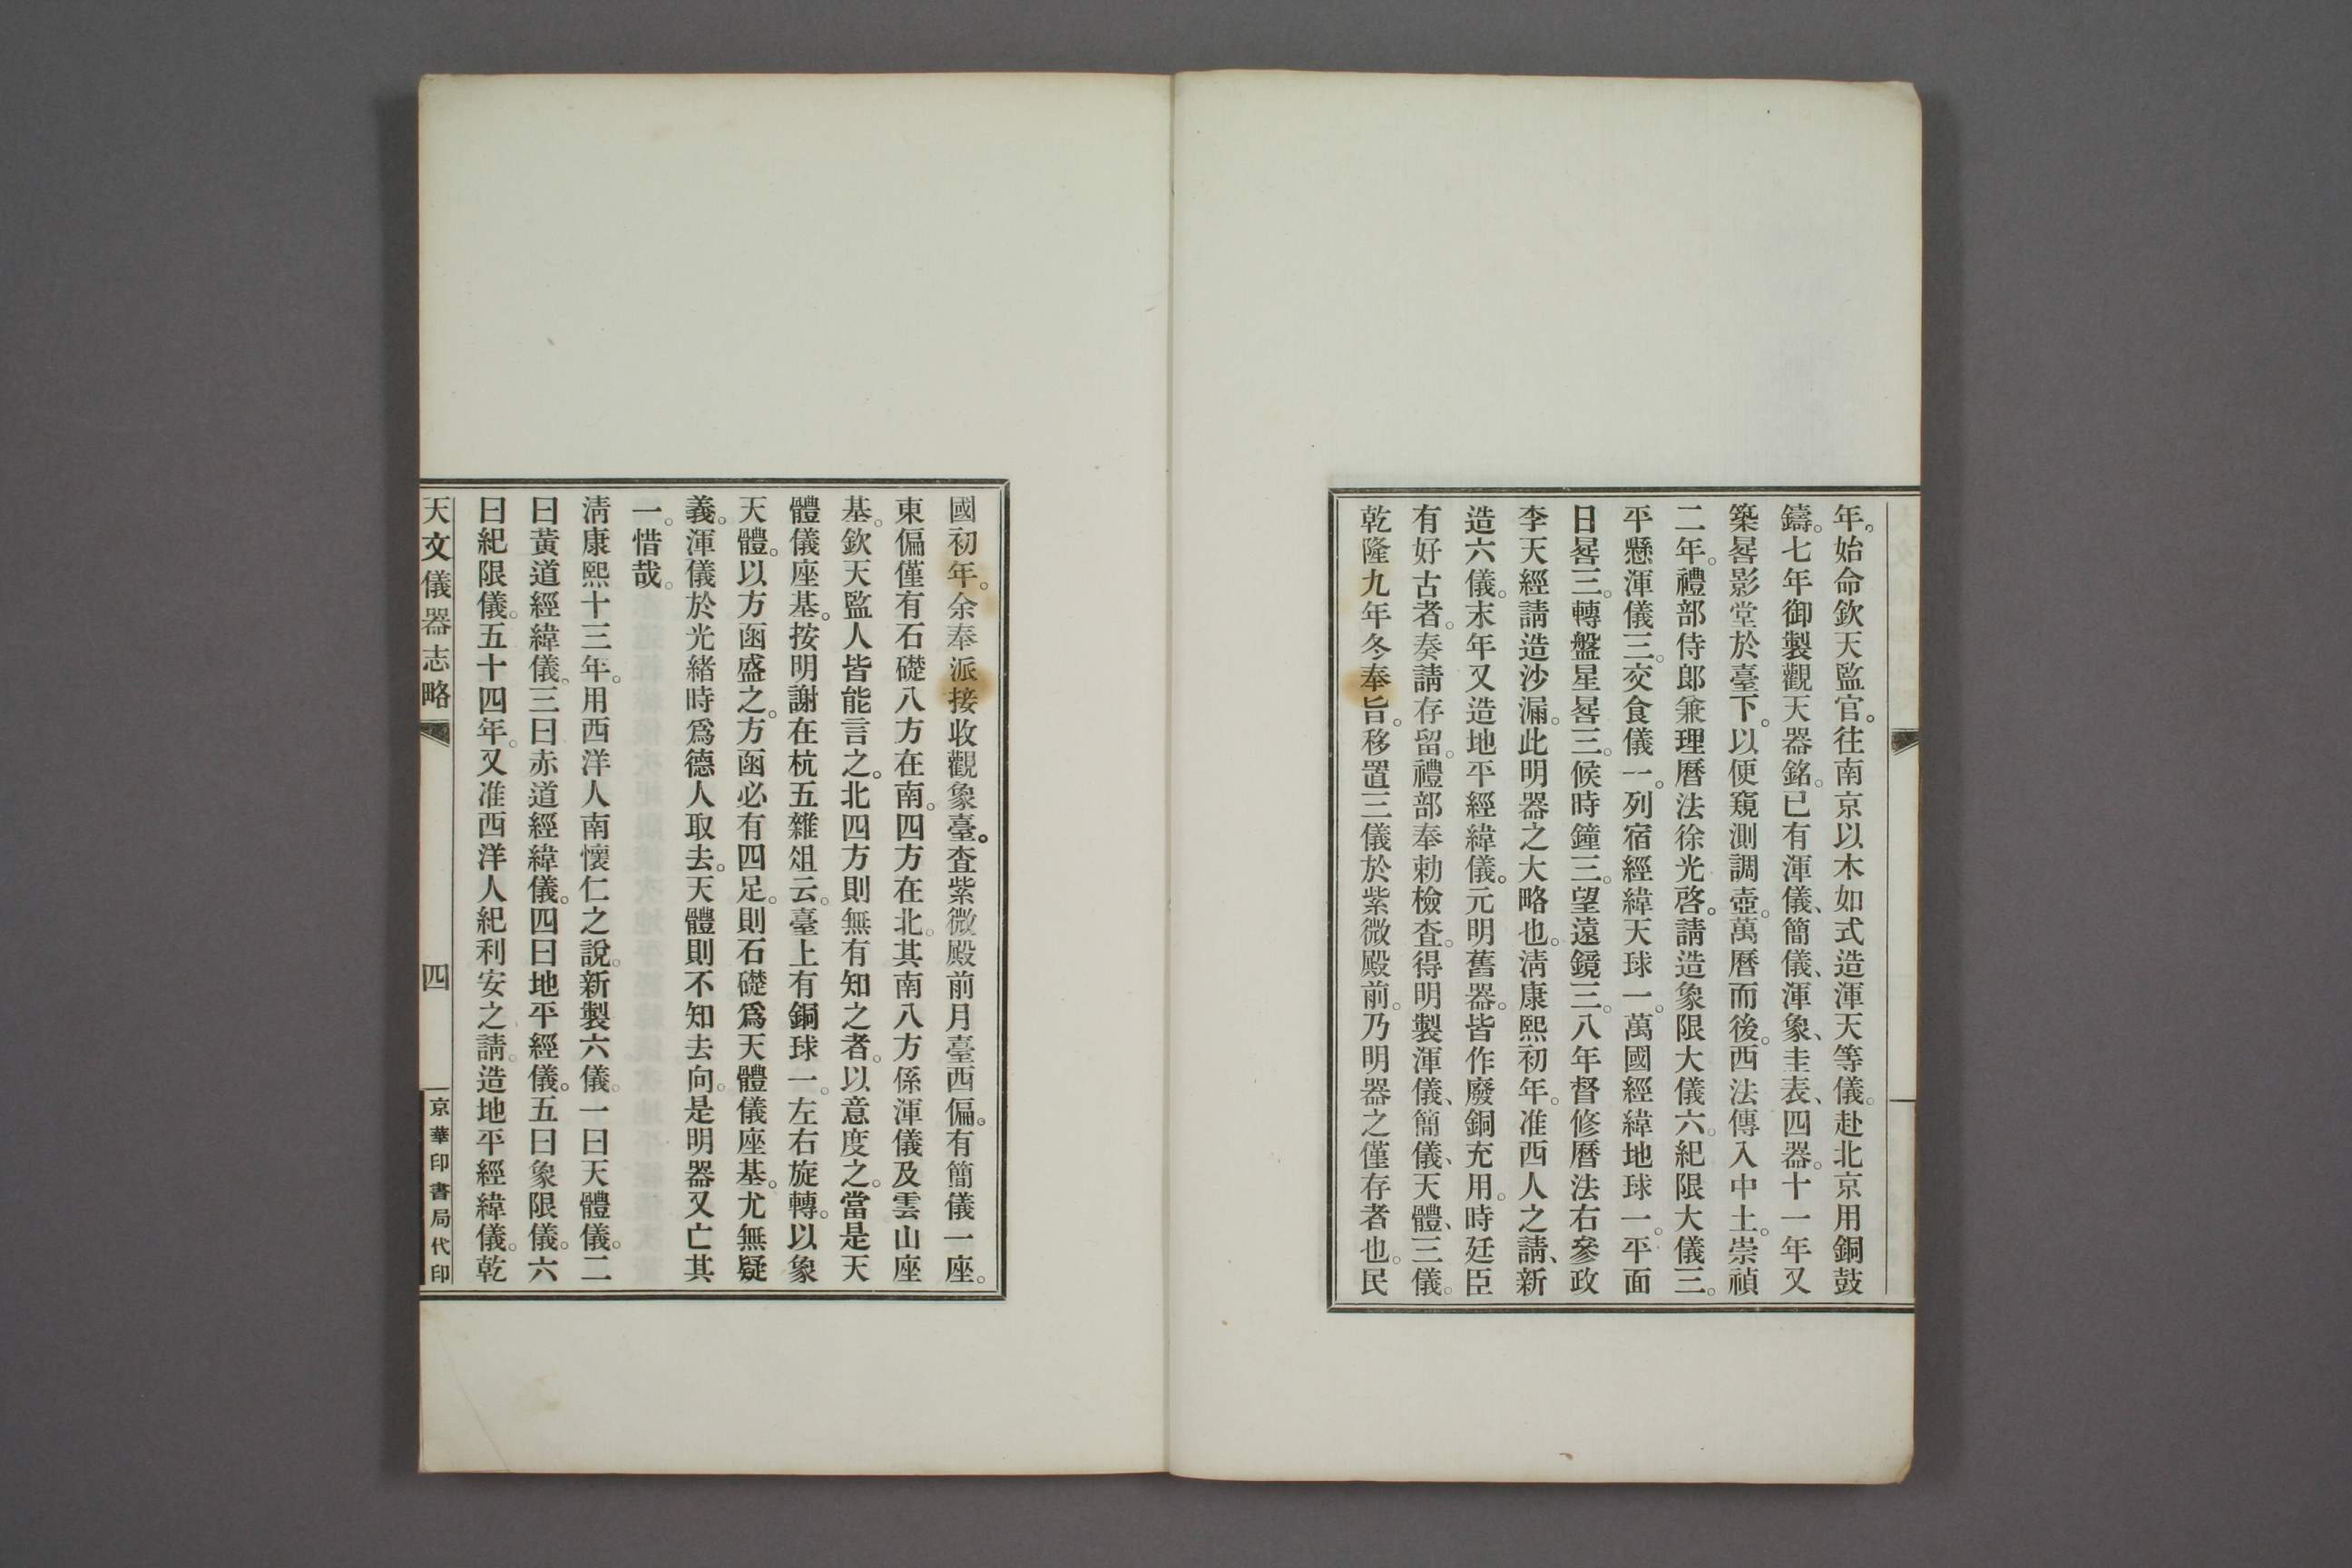 年。始命欽天監官。往南京以木如式造渾天等儀。赴北京用銅鼓
鑄。七年御製觀天器銘。已有渾儀、簡儀、渾象、圭表、四器。十一年又
築晷影堂於臺下。以便窺測調壺。萬曆而後。西法傳入中土。崇禎
二年。禮部侍郎兼理曆法徐光啓。請造象限大儀六。紀限大儀三。
平懸渾儀三。交食儀一。列宿經緯天球一。萬國經緯地球一。平面
日晷三。轉盤星晷三。候時鐘三。望遠鏡三。八年督修曆法右參政
李天經請造沙漏。此明器之大略也。淸康熙初年。准西人之請、新
造六儀。末年又造地平經緯儀。元明舊器。皆作廢銅充用。時廷臣
有好古者。奏請存留。禮部奉勅檢查。得明製渾儀、簡儀、天體、三儀。
乾隆九年冬奉旨。移置三儀於紫微殿前。乃明器之僅存者也。民
國初年。余奉派接收觀象臺。查紫微殿前月臺西偏。有簡儀一座。
東偏僅有石礎八方在南。四方在北。其南八方係渾儀及雲山座
基。欽天監人皆能言之。北四方則無有知之者。以意度之。當是天
體儀座基。按明謝在杭五雜俎云。臺上有銅球一。左右旋轉。以象
天體。以方函盛之。方函必有四足。則石礎爲天體儀座基。尤無疑
義。渾儀於光緒時爲德人取去。天體則不知去向。是明器又亡其
一。惜哉。
淸康熙十三年。用西洋人南懷仁之說。新製六儀。一曰天體儀。二
曰黃道經緯儀。三曰赤道經緯儀。四曰地平經儀。五曰象限儀。六
曰紀限儀。五十四年。又准西洋人紀利安之請。造地平經緯儀。乾
天文儀器志略
四
京華印書局代印